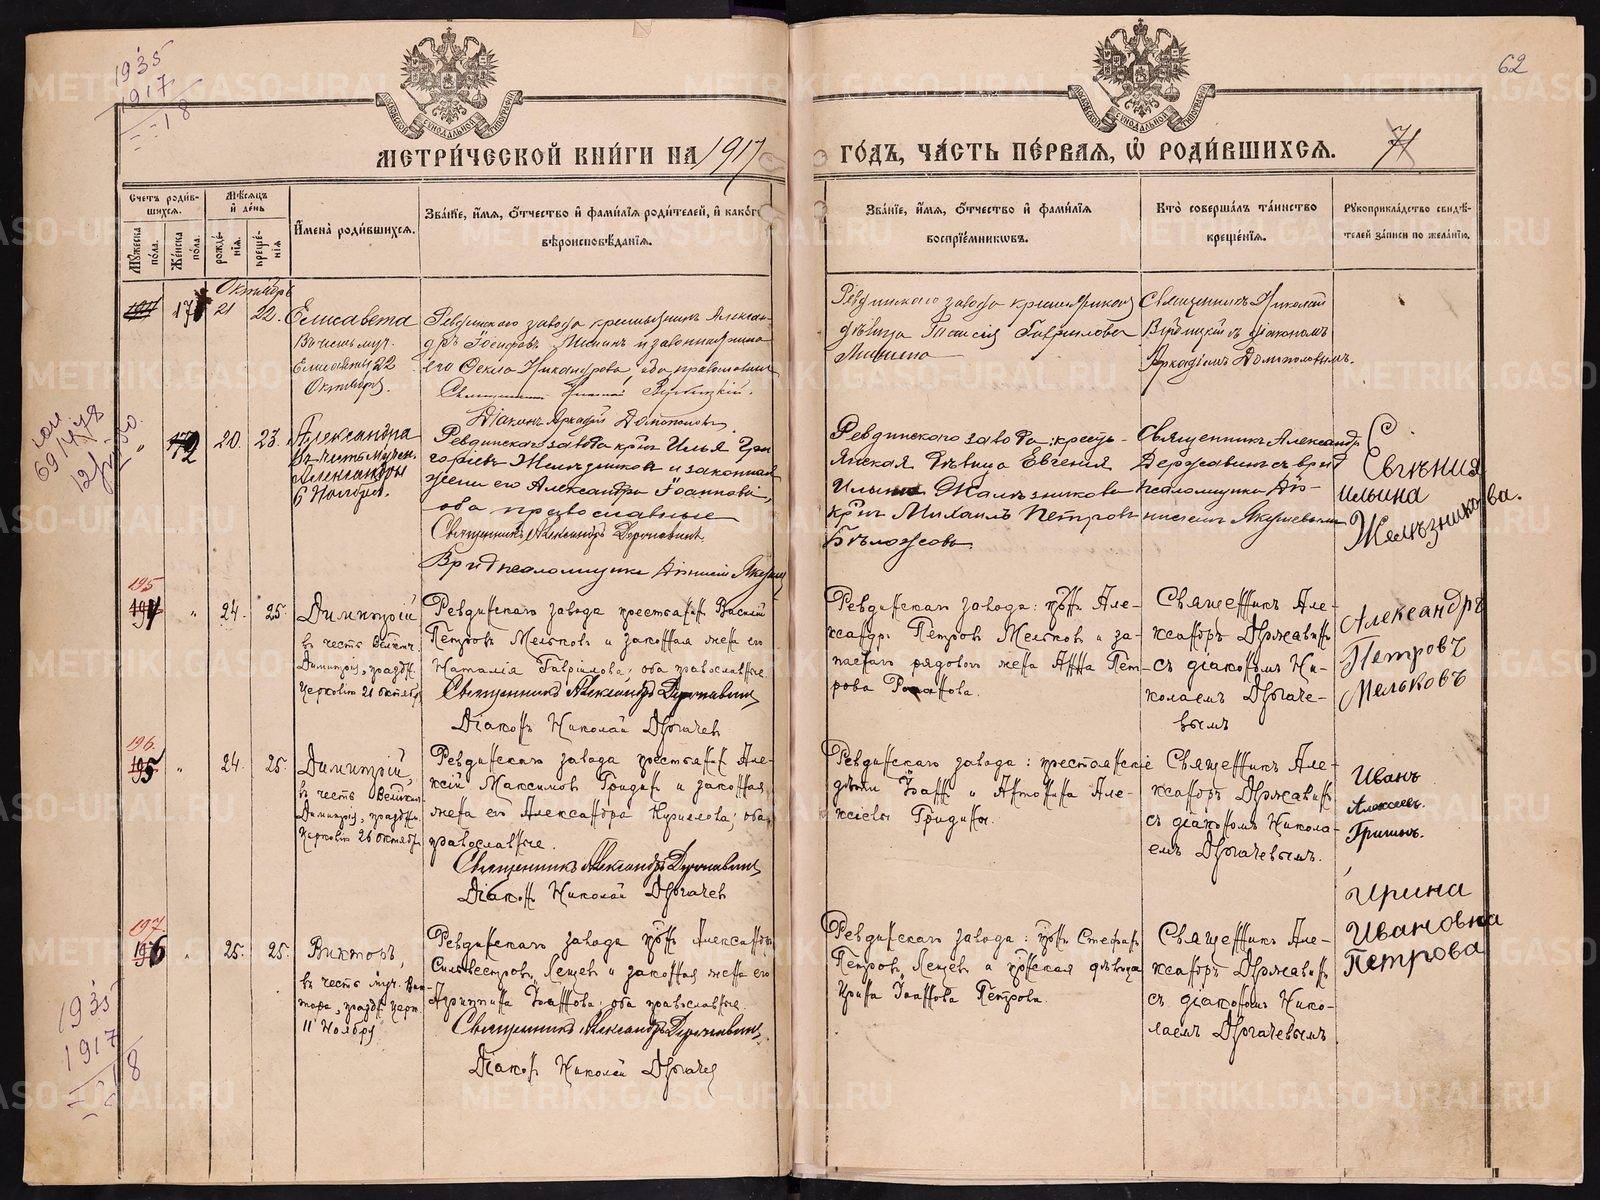 1935
1917
18
62
МЕТРИ́ЧЕСКОЙ КНИ́ГИ НА 1917
ГО́ДЪ, ЧА́СТЬ ПЕ́РВАЯ, Ѡ҆ РОДИ́ВШИХСЯ.
71
Счетъ роди́вшихся.
Мѣ́сяцъ и҆ де́нь
Мꙋ́жеска по́ла.
Же́нска по́ла.
рожде́нїя.
креще́нїя.
И҆мена̀ роди́вшихся.
Зва́нїе, и҆́мя, ѻ҆́тчество и҆ фами́лїя роди́телей, и҆ како́гѡ
вѣроисповѣ́данїя.
Зва́нїе, и҆́мя, ѻ҆́тчество и҆ фами́лїя
воспрїе́мникѡвъ.
Кто̀ соверша́лъ та́инство
креще́нїя.
Рꙋкоприкла́дство свидѣ́-
телей за́писи по жела́нїю.
Октябрь
21 22.
Елисавета
Елисаветы 22
Октября.
Ревдинскаго завода крестьянинъ Алексан-
дръ Іосифовъ и законная жена
его Ѳекла Никандрова, оба православные
Діаконъ Аркадій Домополовъ.
Ревдинскаго завода крестьянская
дѣвица Таисія Гаврилова
Священникъ Николай
съ діакономъ
Аркадіемъ
172 20. 23.
Александра
въ честь мучен.
Александры
6 Ноября.
Ревдинскаго завода кр-нъ Илья Гри-
горіевъ Желѣзниковъ и законная
жена его Александра Іоаннова,
оба православные
Священникъ Александръ Державинъ
Врид псаломщика Діонисій Якушевъ
Ревдинскаго завода: кресть-
янская дѣвица Евгенія
Ильина Желѣзникова
кр-нъ Михаилъ Петровъ
Бѣлоусовъ.
Священникъ Александръ
Державинъ съ врид
псаломщика Діо-
нисіемъ Якушевымъ
Евгѣния
Ильина
Желѣзникова.
195
194 " 24. 25.
Димитрій
въ честь Великом.
Димитрія, праздн.
Церковію 26 октября
Ревдинскаго завода крестьянинъ Василій
Петровъ Мельковъ и законная жена его
Наталія Гавріилова; оба православные.
Священникъ Александръ Державинъ
Діаконъ Николай Дрягачев
Ревдинскаго завода: кр-нъ Але-
ксандръ Петровъ Мельковъ и за-
паснаго рядового жена Анна Пет-
рова
Священникъ Але-
ксандръ Державинъ
съ діакономъ Ни-
колаемъ
Александръ
Петровъ
Мельковъ
196.
195 " 24. 25.
Димитрій,
въ честь Великом.
Димитрія, праздн.
Церковію 26 октября
Ревдинскаго завода крестьянинъ Але-
ксій Максимовъ Гришинъ и законная
жена его Александра Кириллова; оба
православные.
Священникъ Александръ Державинъ
Діаконъ Николай
Ревдинскаго завода: крестьянскіе
дѣти Іоаннъ и Антонина Але-
ксіевы Гришины.
Священникъ Але-
ксандръ Державинъ
съ діакономъ Никола-
емъ
Иванъ
Алексеевъ.
Гришинъ.
197.
196 " 25. 25.
Викторъ,
въ честь муч. Вик-
тора, праздн. Церк.
11 Ноября
Ревдинскаго завода кр-нъ Александръ
Сильвестровъ Лещевъ и законная жена его
Агриппина Іоаннова; оба православные.
Священникъ Александръ Державинъ
Діаконъ Николай
Ревдинскаго завода: кр-нъ Стефанъ
Петровъ Лещевъ и кр-нская дѣвица
Ирина Іоаннова Петрова.
Священникъ Але-
ксандръ Державинъ
съ діакономъ Нико-
лаемъ
Ирина
Ивановна
Петрова
1935
1917
18
METRIKI.GASO-URAL.RU